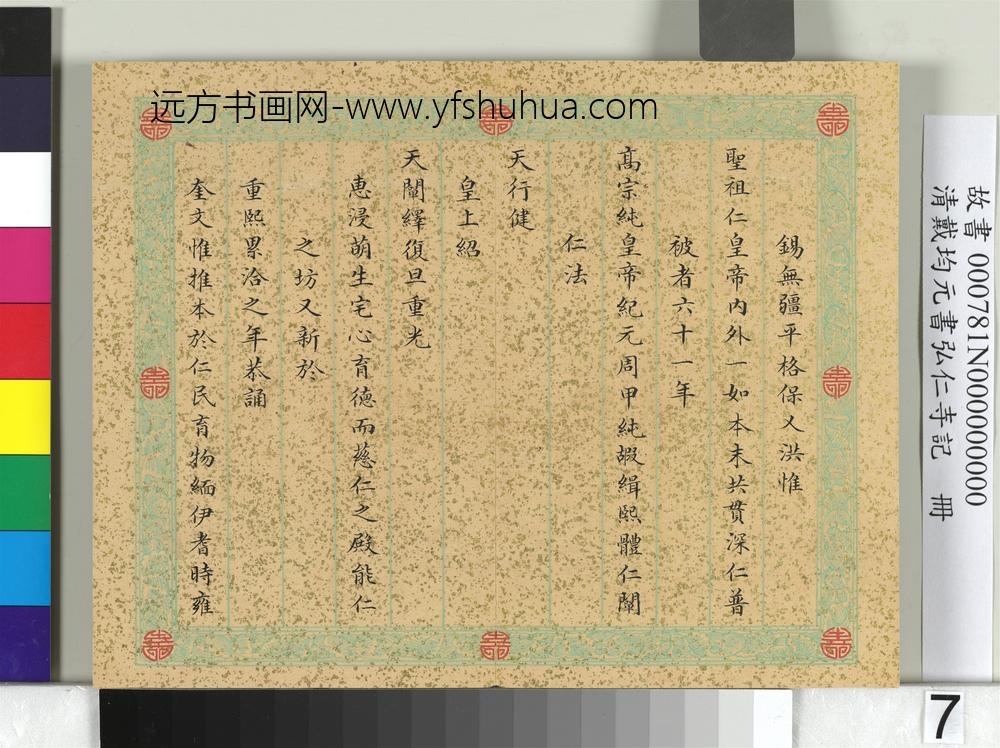 远方书画网-www.yfshuhua.com
錫無疆平格保乂洪惟
聖祖仁皇帝內外一如本末共貫深仁普
被者六十一年
高宗純皇帝紀元周甲純嘏緝熙體仁闡
仁法
天行健
皇上紹
天闡繹復旦重光
惠浸萌生宅心育德而慈仁之殿能仁
之坊又新於
重熙累洽之年恭誦
奎文惟推本於仁民育物緬伊耆時雍
故書 000781N000000000
清戴均元書弘仁寺記 冊
7